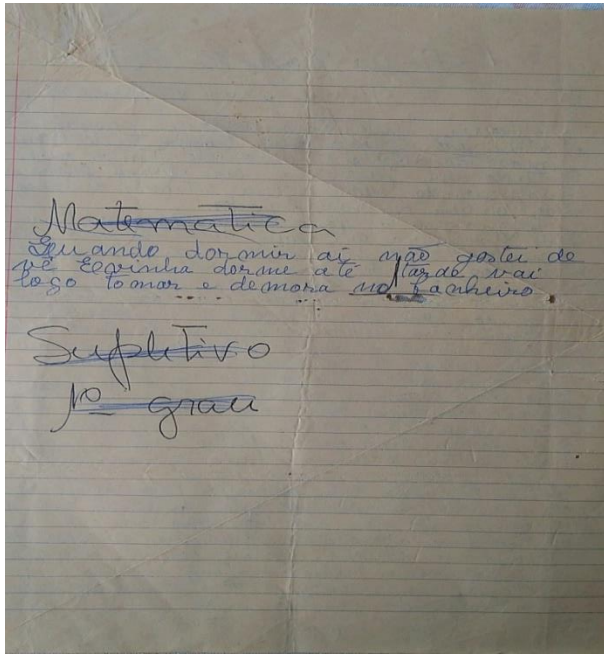 Matematica
Quando dormir ai não gostei de
vê dorme até tarde vai
logo tomar e demora no banheiro
Supletivo
1º grau